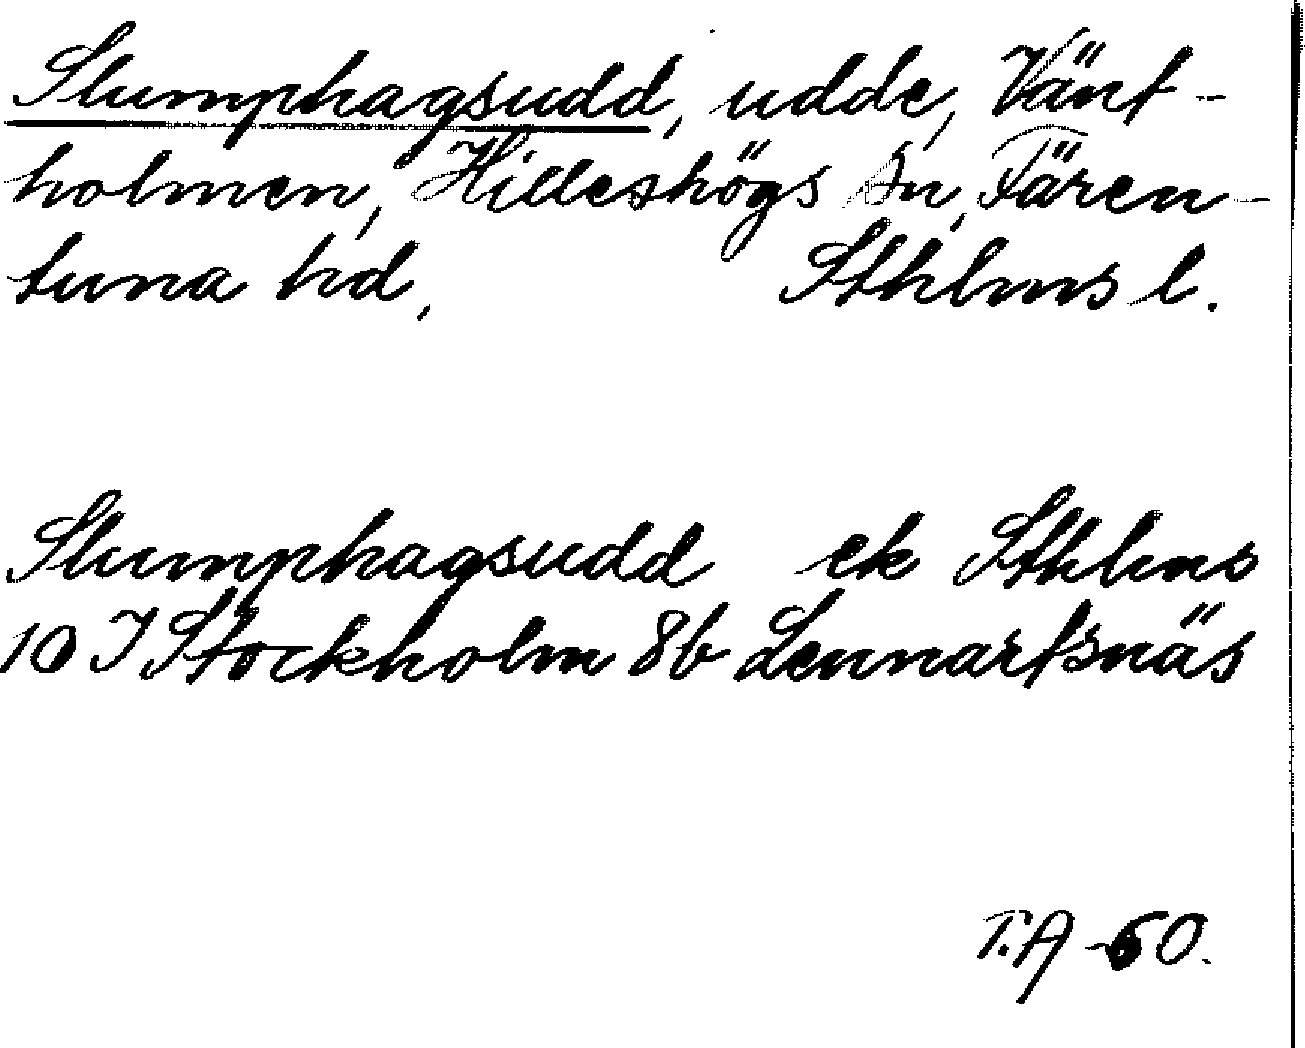 Slumphagsudd, udde, Vänt-
holmen, Hilleshögs sn, Fären-
tuna hd, Sthlms l.
Slumphagsudd ek Sthlms
10 I Stockholm 8b Lennartsnäs
T.A -60.